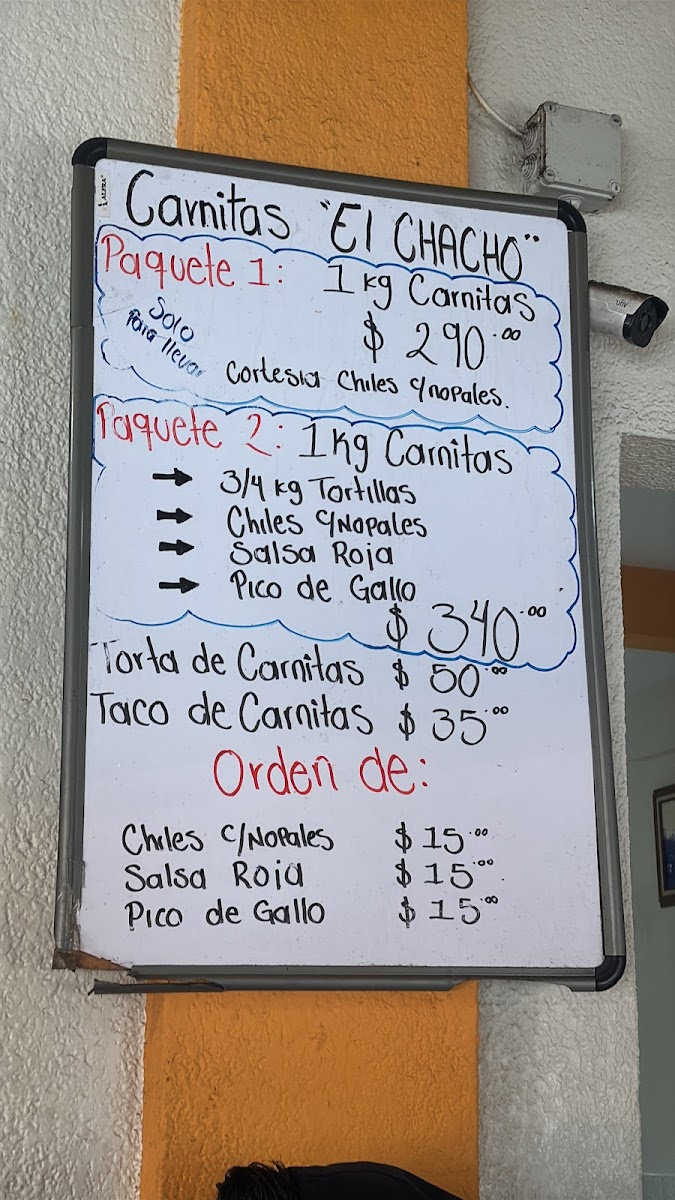 ALFRA
Carnitas "El CHACHO"
Paquete 1: 1 kg Carnitas
$ 290.00
Solo
para llevar
Cortesia Chiles c/nopales.
Paquete 2: 1 kg Carnitas
→ 3/4 kg Tortillas
→ Chiles c/Nopales
→ Salsa Roja
→ Pico de Gallo
$ 340.00
Torta de Carnitas $ 50.00
Taco de Carnitas $ 35.00
Orden de:
Chiles c/Nopales $ 15.00
Salsa Roja $ 15.00
Pico de Gallo $ 15.00